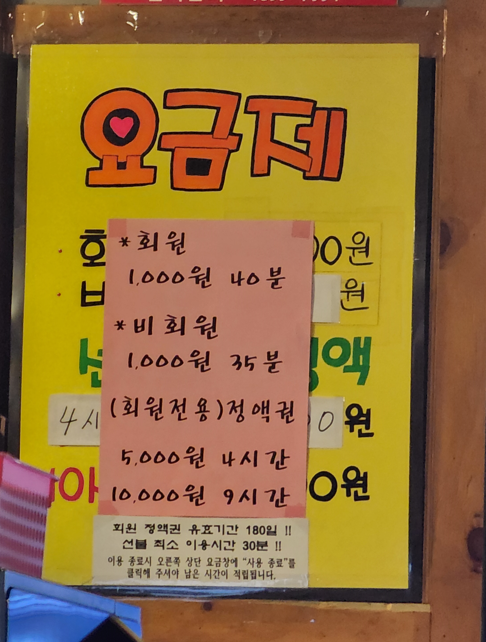 요금제
*회원
1,000원 40분
원
*비회원
원
1,000원 35분
(회원전용)정액권
5,000원 4시간
원
10,000원 9시간
원
회원 정액권 유효기간 180일 !!
선불 최소 이용시간 30분 !!
이용 종료시 오른쪽 상단 요금창에 "사용 종료"를
클릭해 주셔야 남은 시간이 적립됩니다.